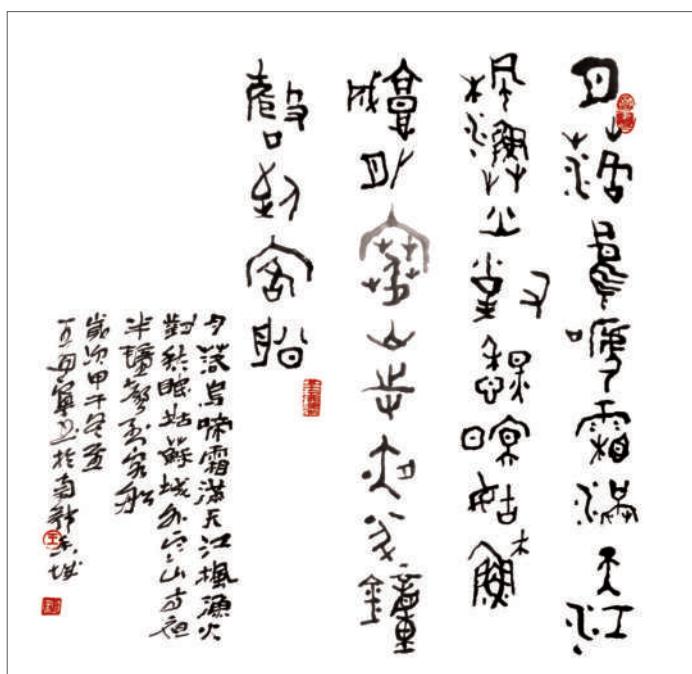 月落烏啼霜滿天江
楓漁火對愁眠姑蘇
城外寒山寺夜半鐘
聲到客船
月落烏啼霜滿天江楓漁火
對愁眠姑蘇城外寒山寺夜
半鐘聲到客船
歲次甲午冬至
寧書於南